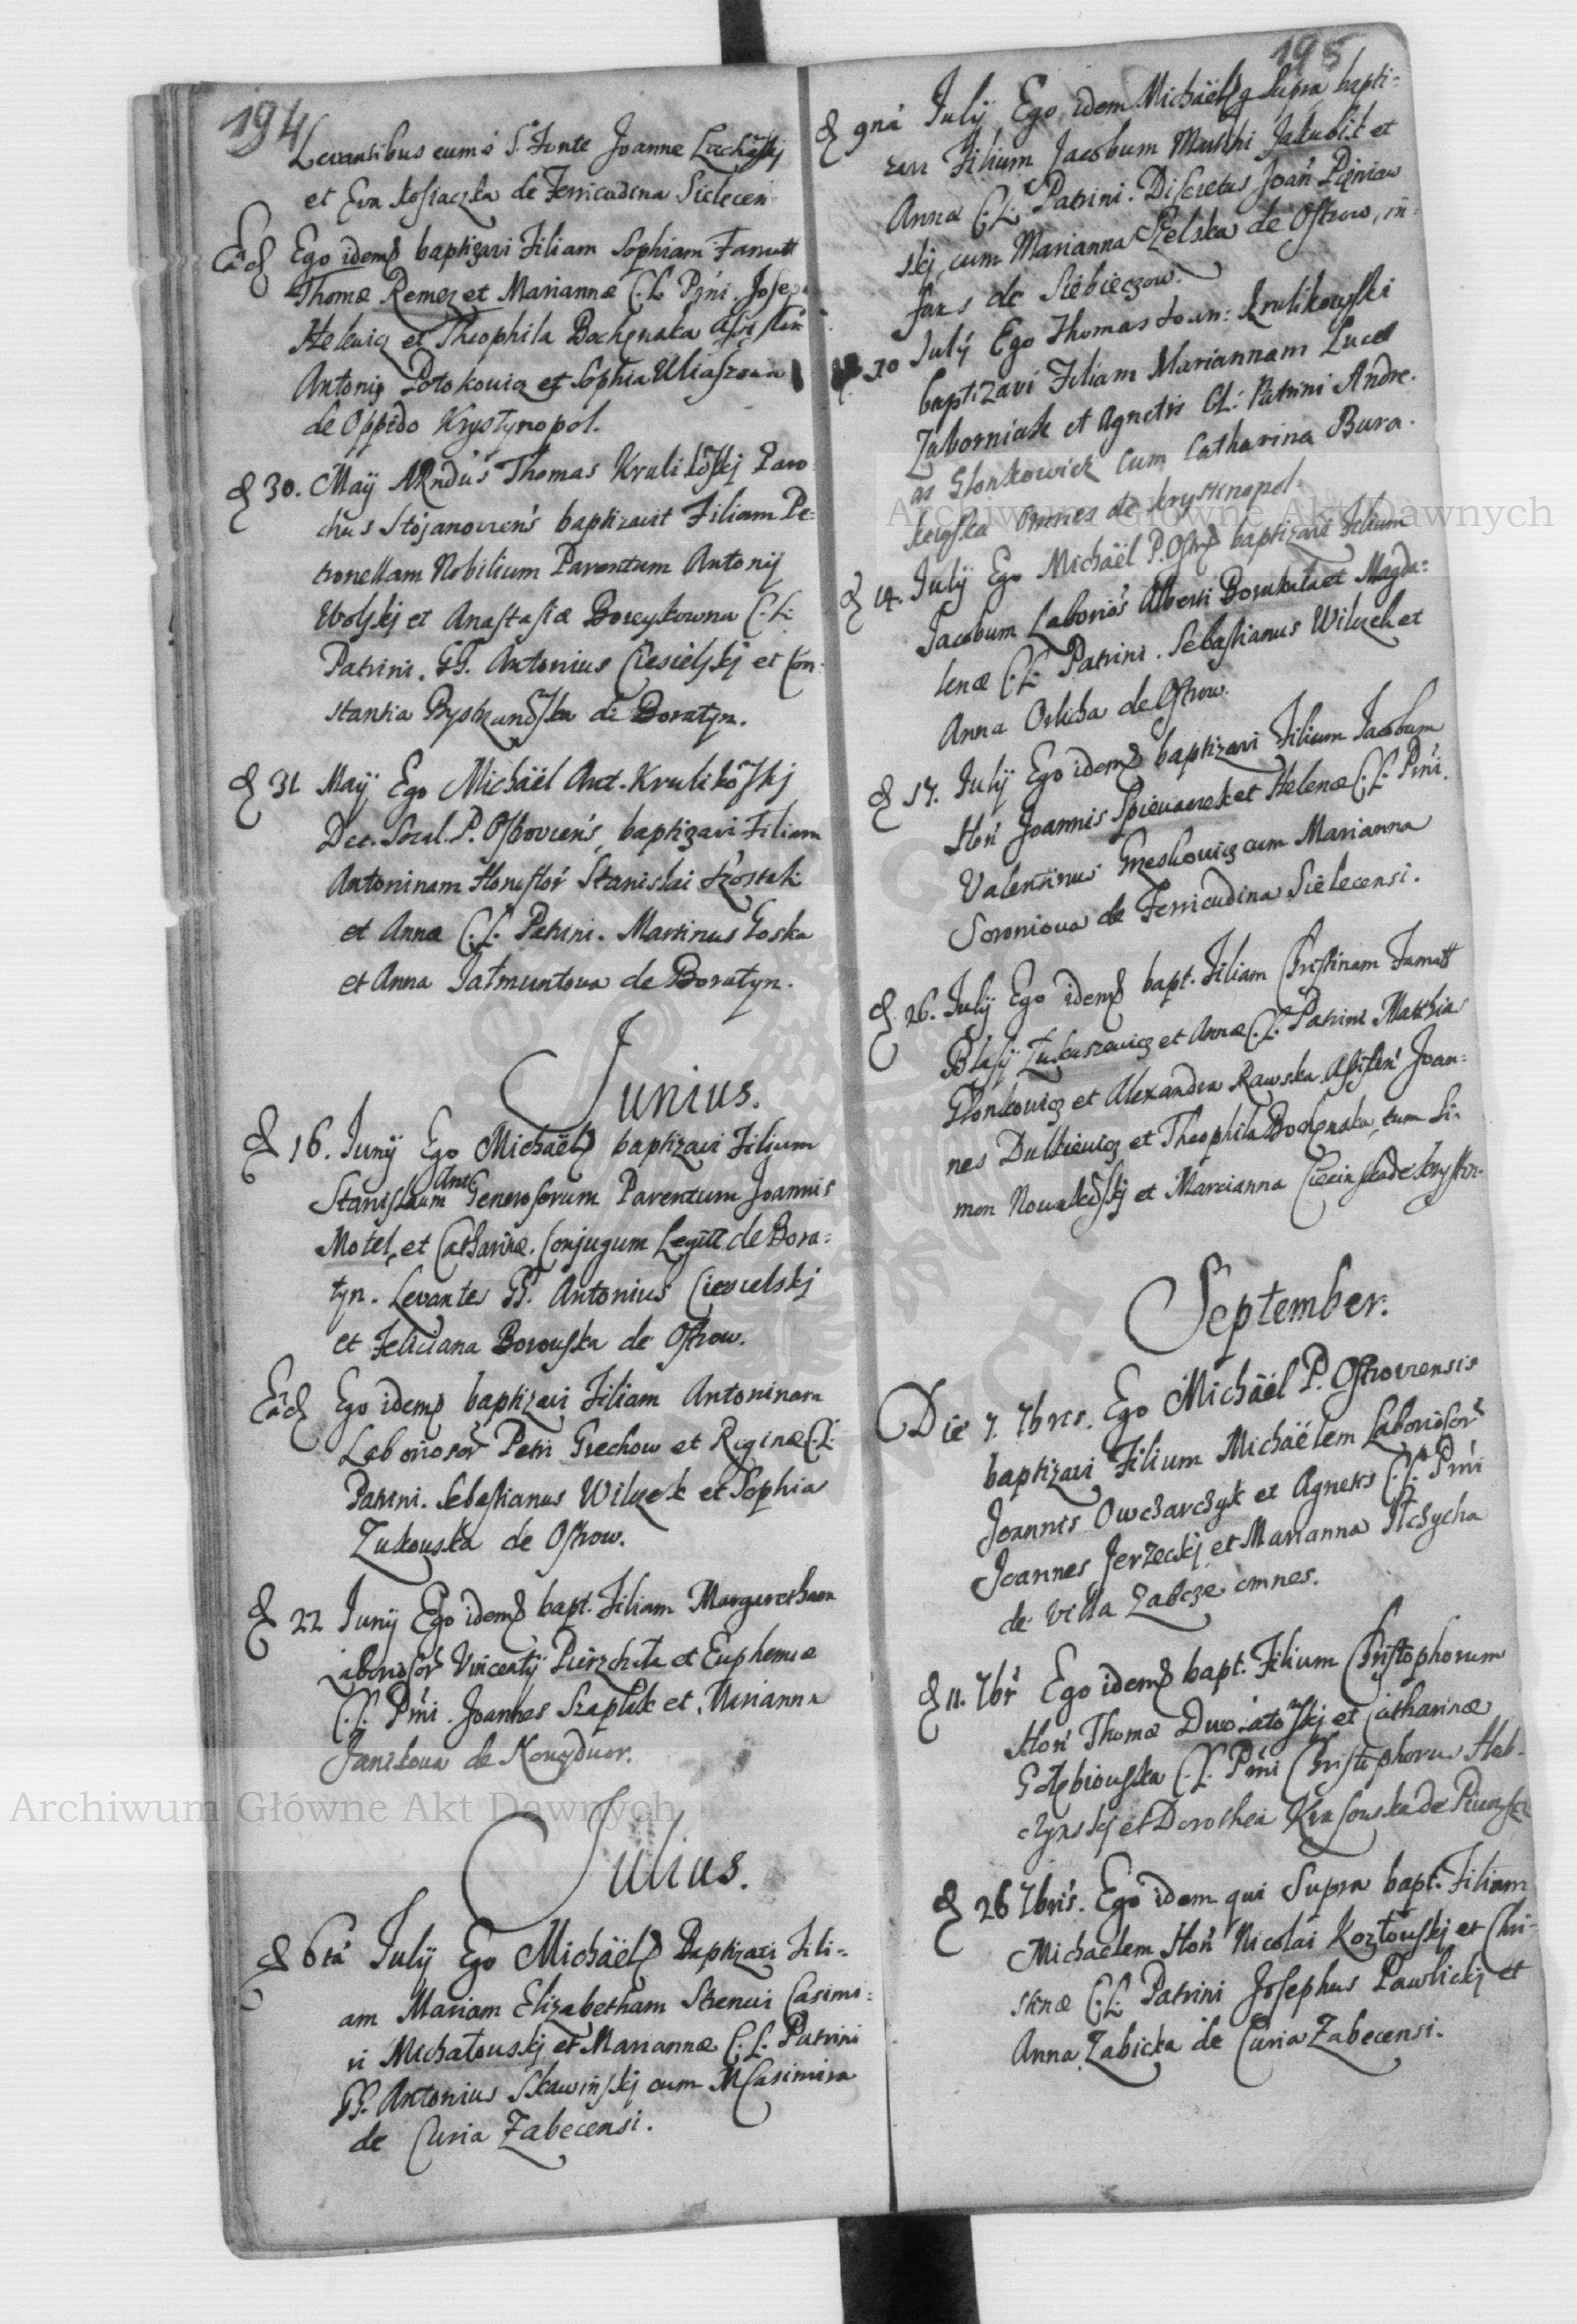 194
Levantibus eum è S. Fonte Joanne
et Eva Kosiaczka de Ferricudina Sielecen
Ead Ego idem baptizavi Filiam Sophiam Famatt
Thomæ Remez et Mariannæ C.L. Prni. Josep
et Theophila Bochenska
Antoniq Potokowicz et Sophia Uliaszowa
de Oppido Krystynopol.
d 30. Maij ARndus Thomas Krulikoskj Paro
chus Stojanovien's baptizavit Filiam Pe=
tronellam Nobilium Parentum Antonij
Wolskj et Anastasiæ Boreykowna C.L.
Patrini. GG. Antonius Ciesielskj et Con:
stantia de Boratyn.
d 31 Maij Ego Michäël Ant. Krulikoskj
Dec. Socal. P. Ostrovien's, baptizavi Filiam
Antoninam Honestor Stanislai
et Annæ C.L. Patrini. Martinus Goska
et Anna Jatmuntowa de Boratyn.
Junius.
d 16. Junij Ego Michäël baptizavi Filium
Stanislaum Ant Generosorum Parentum Joannis
Motel, et Catharinæ. Conjugum Legitt. de Bora=
tyn. Levante GG. Antonius Ciesielskj
et Feliciana Borowska de Ostrow.
Ead Ego idem baptizavi Filiam Antoninam
Laboriosor Petri Grechow et Reginæ C.L.
Patrini. Sebastianus Wilczek et Sophia
Zukowska de Ostrow.
d 22 Junij Ego idem bapt. Filiam Margaretham
Laboriosor Vincentij Pierzchała et Euphemiæ
C.L. Prni. Joannes Szaplak et Marianna
Janikowa de Nowydwor.
Julius.
d 6ta Julij Ego Michäël Baptizavi Fili=
am Mariam Elizabetham Strenui Casimi=
ri Michałowskj et Mariannæ C.L. Patrini
GG. Antonius Skawińskj cum M Casimira
de Curia Zabecensi.
195
d 9na Julij Ego idem Michäël q Supra bapti=
zavi Filium Jacobum Matthi Jakubik et
Annæ C.L. Patrini. Discretus Joan Pieniaw
skj, cum Marianna de Ostrow, in=
fans de Siebieczow.
d 10 Julij Ego Thomas Joan: Krulikowski
baptizavi Filiam Mariannam Lucæ
Zaborniak et Agnetis CL: Patrini Andre.
as Glonkowicz cum Catharina Bura.
kowska omnes de Krystinopol.
d 14. Julij Ego Michäël P. Ostr baptizavi Filium
Jacobum Laborios Alberti et Magda=
lenæ C.L. Patrini. Sebastianus Wilczek et
Anna Orlicha de Ostrow.
d 17. Julij Ego idem baptizavi Filium Jacobum
Hon Joannis Spiewaczek et Helenæ C.L. Prni.
Valentinus Greskowicz cum Marianna
Soroniowa de Ferricudina Sielecensi.
d 26. Julij Ego idem bapt. Filiam Christinam Famatt
Blasij Łukaszewicz et Annæ C.L. Patrini Matthias
Glonkowicz et Alexandra Rawska Assisten Joan=
nes Dulkiewicz et Theophila Bochenska, tum Si=
mon et Marcianna de Krystin.
September.
Die 7. 7bris. Ego Michäël P. Ostroviensis
baptizavi Filium Michäëlem Laboriosor
Joannis Owcharchyk et Agnetis C.L. Prni
Joannes Jerzeckj et Marianna Stchycha
de Villa Zabcze omnes.
d 11. 7br Ego idem bapt. Filium Christophorum
Hon Thomæ et Catharinæ
Gołębiowska C.L. Prni Christophorus Heb.
et Dorothea Krasowska de
d 26 7bris. Ego idem qui Supra bapt. Filiam
Michaelem Hon Nicolai Kozłowskj et Chri=
stinæ C.L. Patrini Josephus Pawlickj et
Anna Zabicka de Curia Zabecensi.
Archiwum Główne Akt Dawnych
Archiwum Główne Akt Dawnych